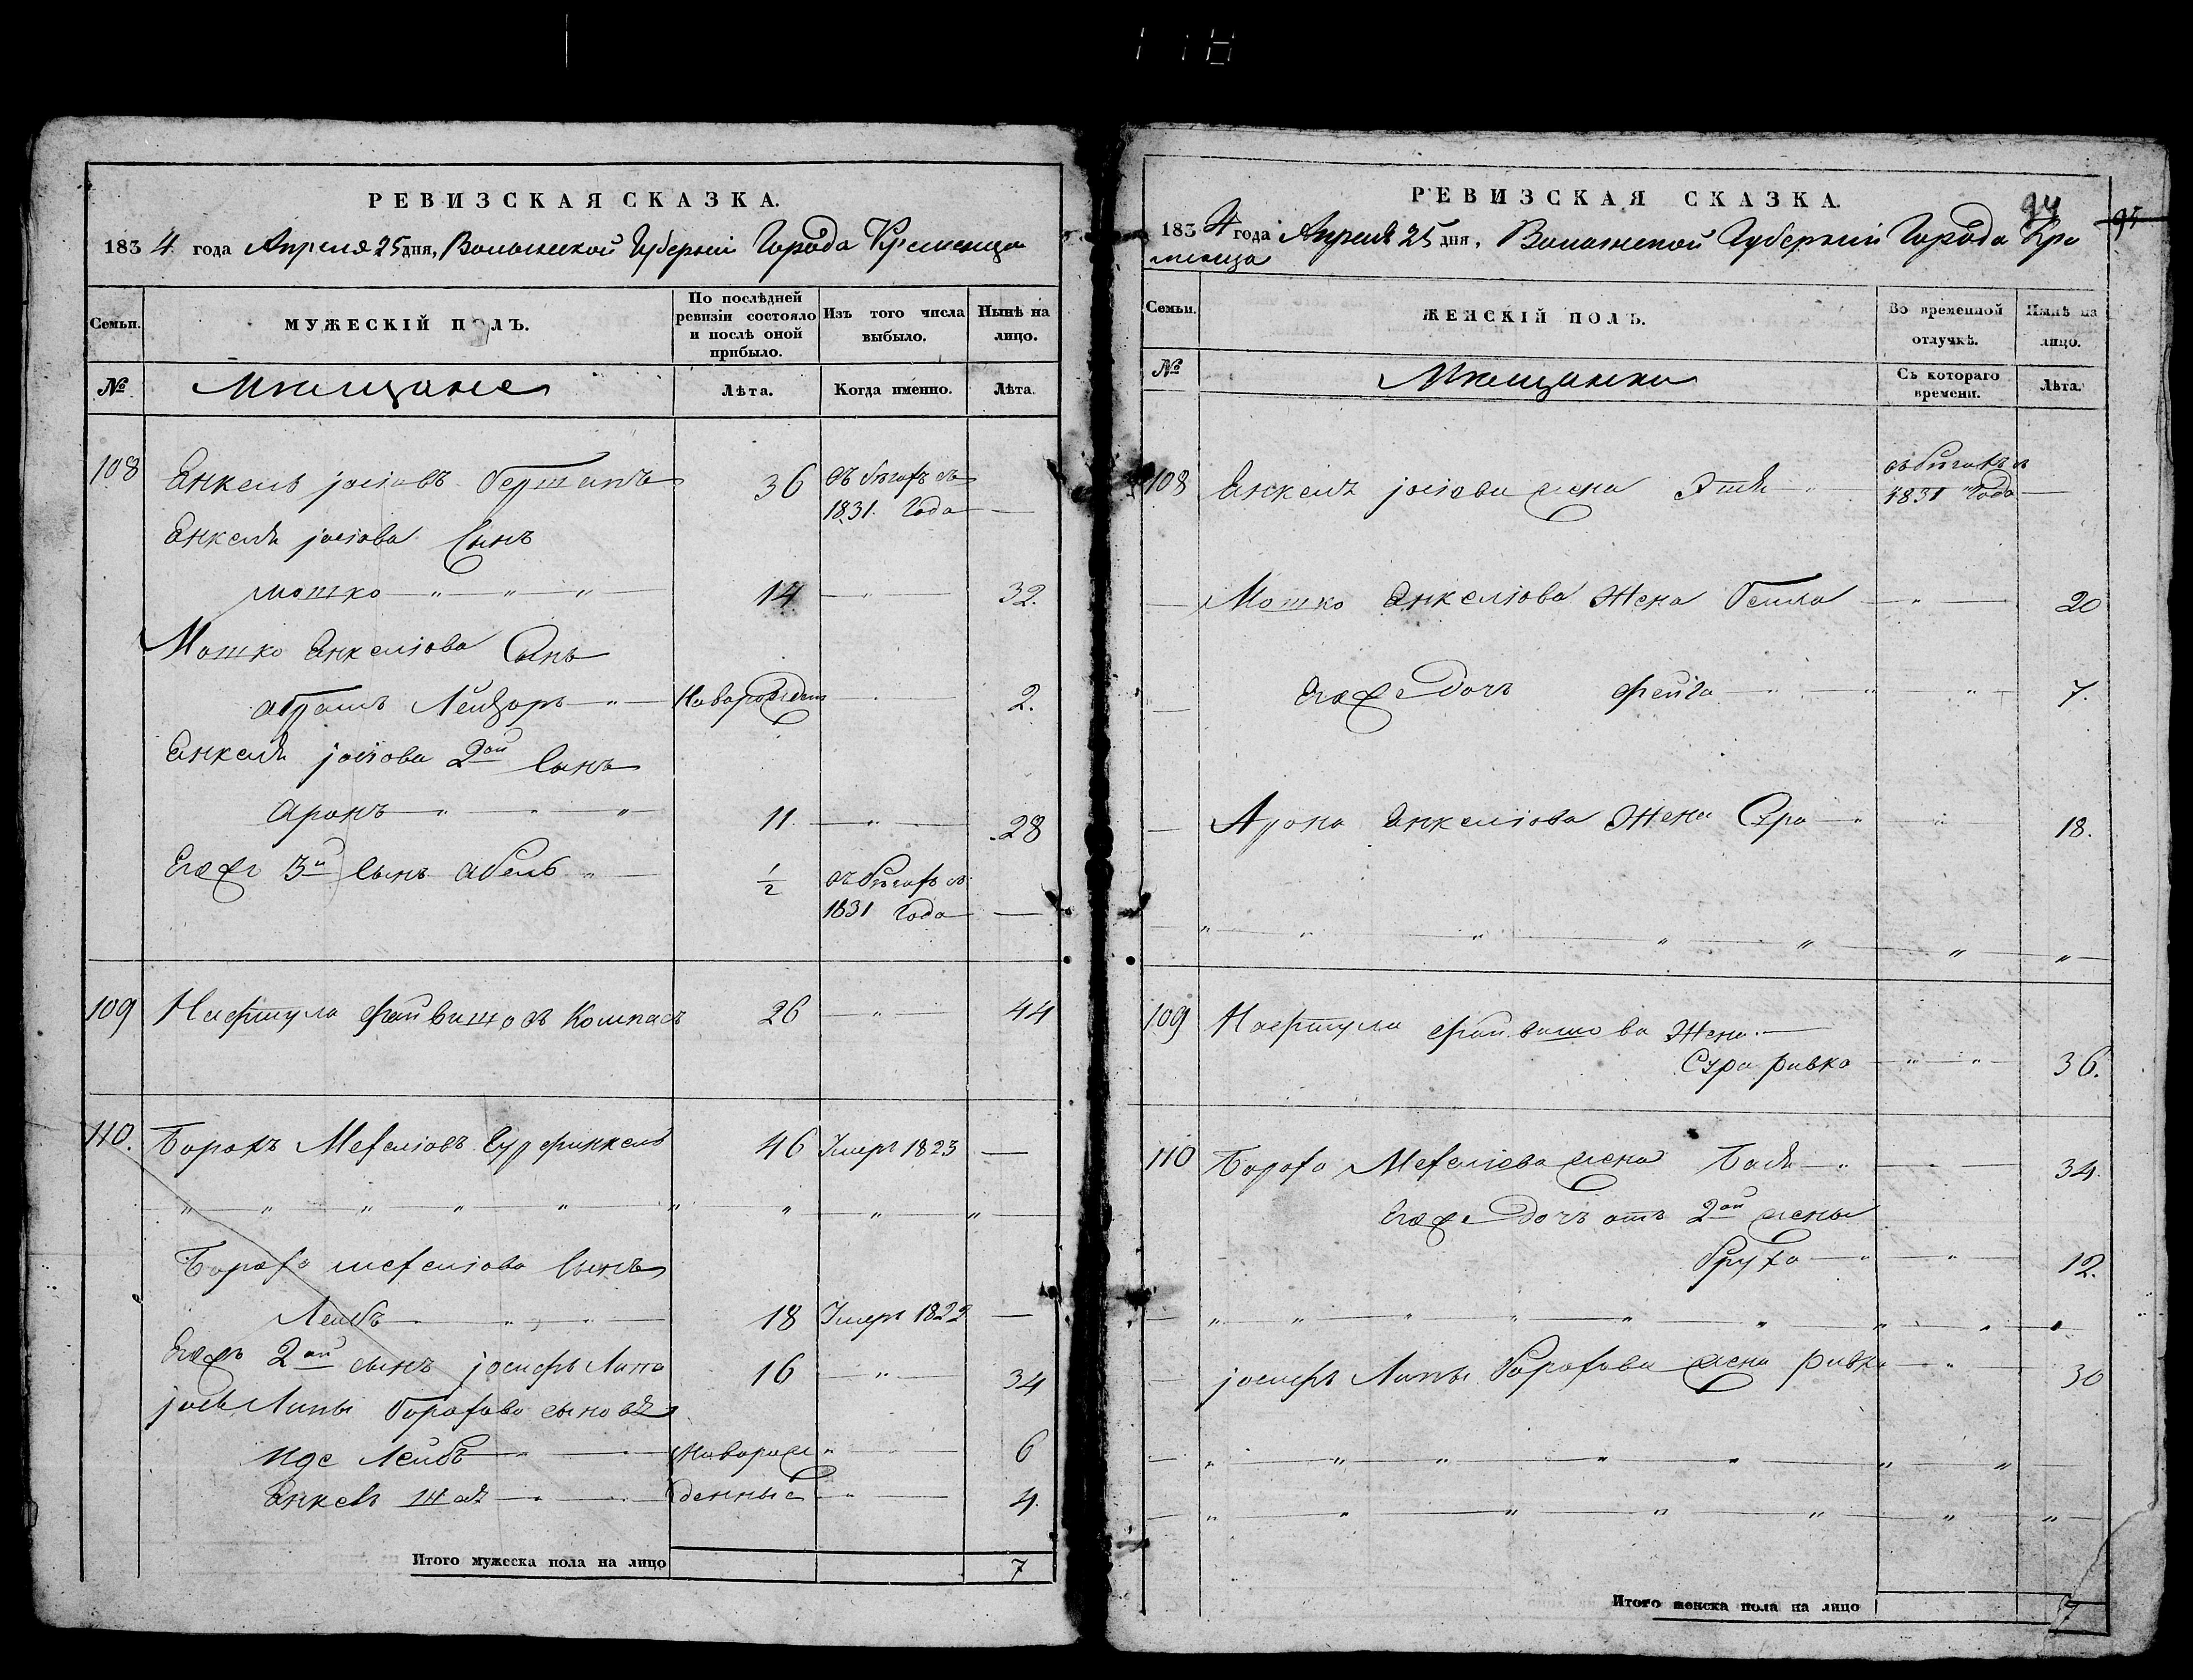 РЕВИЗСКАЯ СКАЗКА.
1834 года Апреля 25 дня, Волынской Губерніи Города Кременца
Семьи. МУЖЕСКІЙ ПОЛЪ. По послѣдней ревизіи состояло и послѣ оной прибыло. Изъ того числа выбыло. Нынѣ на лицо.
№ Мѣщане Лѣта. Когда именно. Лѣта.
108 Енкель Іосіовъ 36 въ бѣгахъ съ
1831 Года —
Енкеля Іосіова Сынъ
Мошко 14 32.
Мошко Енкеліова Сынъ
Абрамъ Лейзоръ Новорожден 2.
Енкеля Іосіова 2ой Сынъ
Аронъ 11 28
Егоже 3й Сынъ Абель 1/2 въ бѣгахъ съ
1831 Года —
109 Нафтула Файвишовъ Компасъ 26 44
110. Борохъ Мехеліовъ Гурфинкель 46 Умеръ 1823 —
Бороха Мехеліова Сынъ
Лейбъ 18 Умеръ 1822 —
Егожъ 2ой сынъ Іосифъ Липа 16 34
Іось Липы Борохова сыновя
Иде Лейбъ Новорож 6
Енкель денные 4.
Итого мужеска пола на лицо 7
РЕВИЗСКАЯ СКАЗКА.
94
95
1834 года Апреля 25 дня, Волынской Губерніи Города Кре
менца
Семьи. ЖЕНСКІЙ ПОЛЪ. Во временной отлучкѣ. Нынѣ на лицо.
№ Мѣщанки Съ котораго времени. Лѣта.
108 Енкеля Іосіова жена Этя въ бѣгахъ съ
1831 Года —
Мошко Енкеліова Жена Бейла 20
Егоже Дочь Фейга 7.
Арона Енкеліова Жена Сура 18.
109 Нафтула Файвишова Жена
Сура Ривка 36.
110 Бороха Мехеліова жена Бася 34.
Егоже Дочъ отъ 2ой жены
Бруха 12.
Іосифъ Липы Борохова жена Ривка 30
Итого женска пола на лицо 7